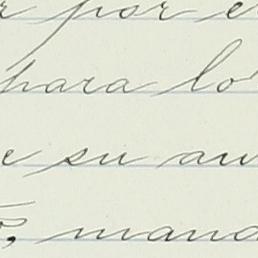 r por e
para lo
e su au
, mand